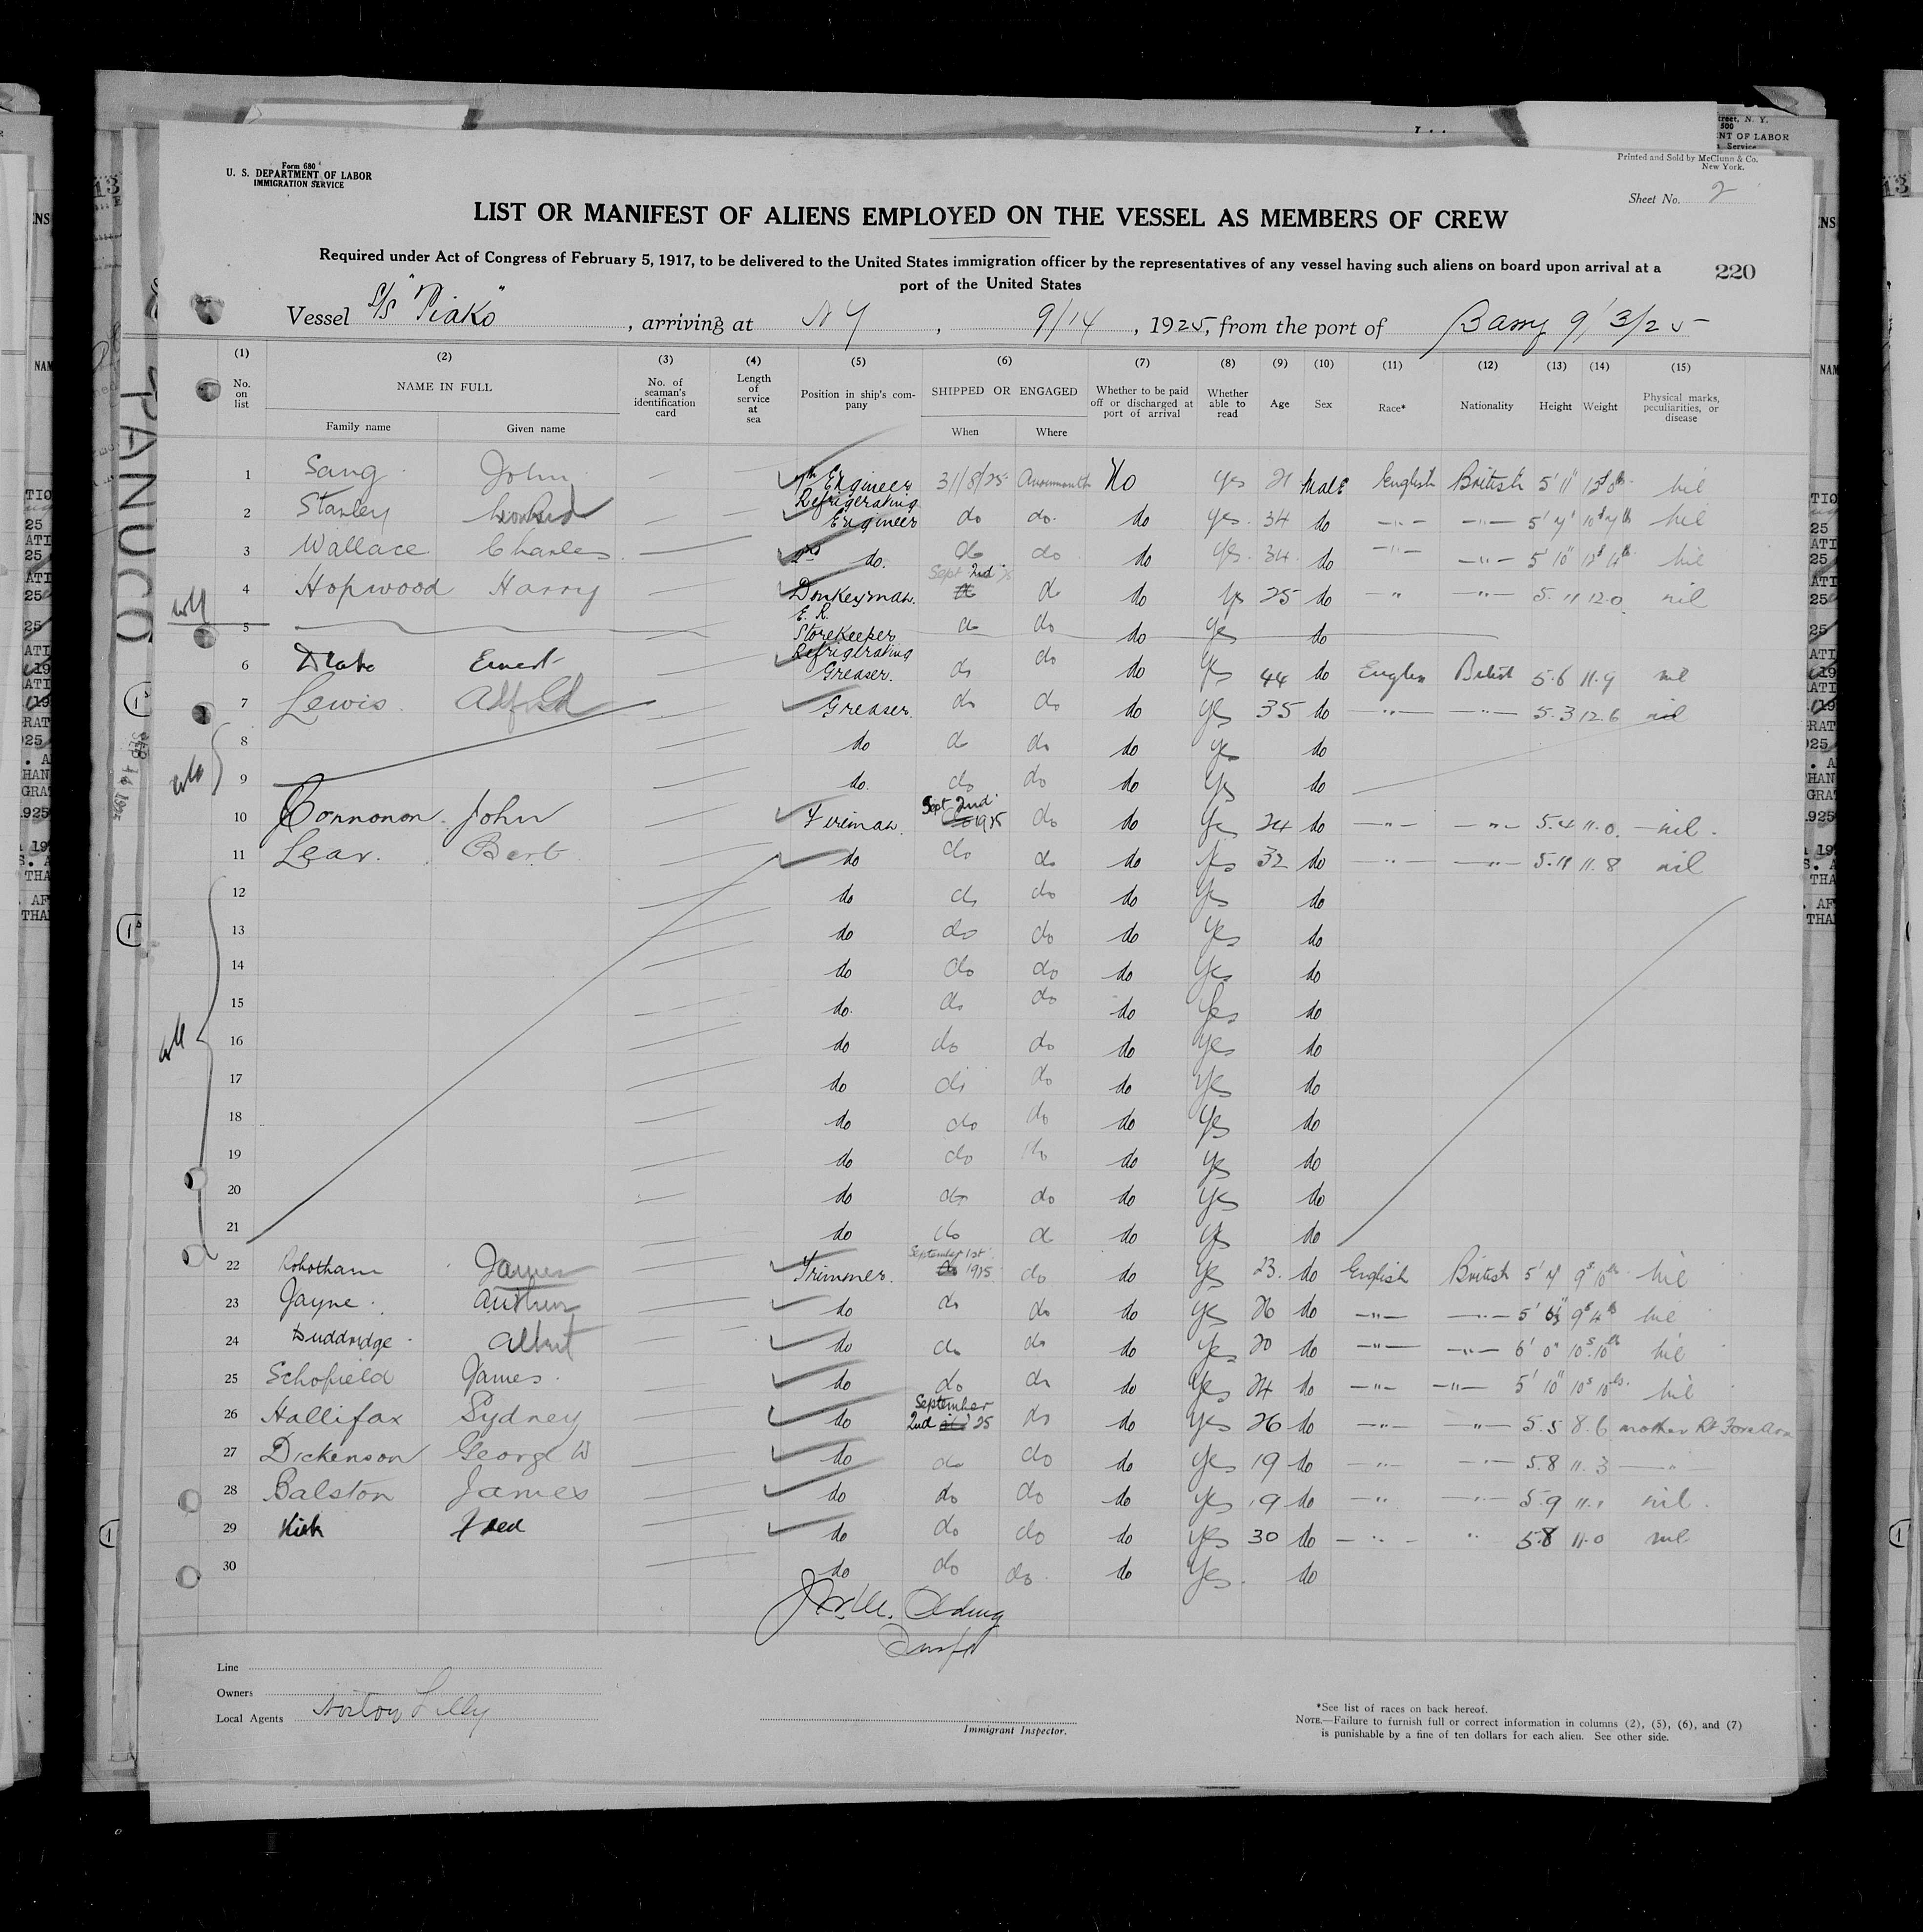 Form 680
U. S. DEPARTMENT OF LABOR
IMMIGRATION SERVICE
Printed and Sold by McClunn & Co.
New York.
Sheet No. 2
LIST OR MANIFEST OF ALIENS EMPLOYED ON THE VESSEL AS MEMBERS OF CREW
Required under Act of Congress of February 5, 1917, to be delivered to the United States immigration officer by the representatives of any vessel having such aliens on board upon arrival at a
port of the United States
220
Vessel S/S "Piako", arriving at NY, 9/14, 1925, from the port of Barry 9/3/25
(1) (2) (3) (4) (5) (6) (7) (8) (9) (10) (11) (12) (13) (14) (15)
No. on list NAME IN FULL Family name Given name No. of seaman's identification card Length of service at sea Position in ship's company SHIPPED OR ENGAGED When Where Whether to be paid off or discharged at port of arrival Whether able to read Age Sex Race* Nationality Height Weight Physical marks, peculiarities, or disease
1 Sang John Engineer 31/8/25 Avonmouth No Yes 21 Male English British 5' 11" nil
2 Stanley Leonard Refrigerating Engineer do do do Yes 34 do -"- -"- 5' 7" nil
3 Wallace Charles 2nd do. do do do Yes 34 do -"- -"- 5' 10" nil
4 Hopwood Harry Donkeyman. Sept 2nd do do Yes 25 do -"- -"- 5.11 12.0 nil
5 E. R. Storekeeper do do do Yes do
6 Drake Ernest Refrigerating Greaser. do do do Yes 44 do English British 5.6 11.9 nil
7 Lewis Alfred Greaser. do do do Yes 35 do -"- -"- 5.3 12.6 nil
8 do do do do Yes do
9 do. do do do Yes do
10 Connonon John Fireman. Sept 2nd 1925 do do Yes 24 do -"- -"- 5.4 11.0. nil.
11 Lear. Bert do do do do Yes 32 do -"- -"- 5.11 11.8 nil
12 do do do do Yes do
13 do do do do Yes do
14 do do do do Yes do
15 do. do do do Yes do
16 do do do do Yes do
17 do do do do Yes do
18 do do do do Yes do
19 do do do do Yes do
20 do do do do Yes do
21 do do do do Yes do
22 Rohotham James Trimmer. September 1st 1925 do do Yes 23. do English British 5' 7" 9s 10lb nil
23 Jayne Arthur do do do do Yes 26 do -"- -"- 9s 4lb nil
24 Duddridge Albert do do do do Yes 20 do -"- -"- 6' 0" 10s 10lb nil
25 Schofield James. do do do do Yes 24 do -"- -"- 5' 10" 10s 10lbs. nil
26 Hallifax Sydney do September 2nd 25 do do Yes 26 do -"- -"- 5.5 8.6 mother Rt Forearm
27 Dickenson George W do do do do Yes 19 do -"- -"- 5.8 11.3 -"-
28 Balston James do do do do Yes 19 do -"- -"- 5.9 11.1 nil.
29 Kirk Fred do do do do Yes 30 do -"- -"- 5.8 11.0 nil
30 do do do do Yes. do
Line
Owners
Local Agents Norton Lilly
Immigrant Inspector.
*See list of races on back hereof.
NOTE.—Failure to furnish full or correct information in columns (2), (5), (6), and (7)
is punishable by a fine of ten dollars for each alien. See other side.
PANUCO